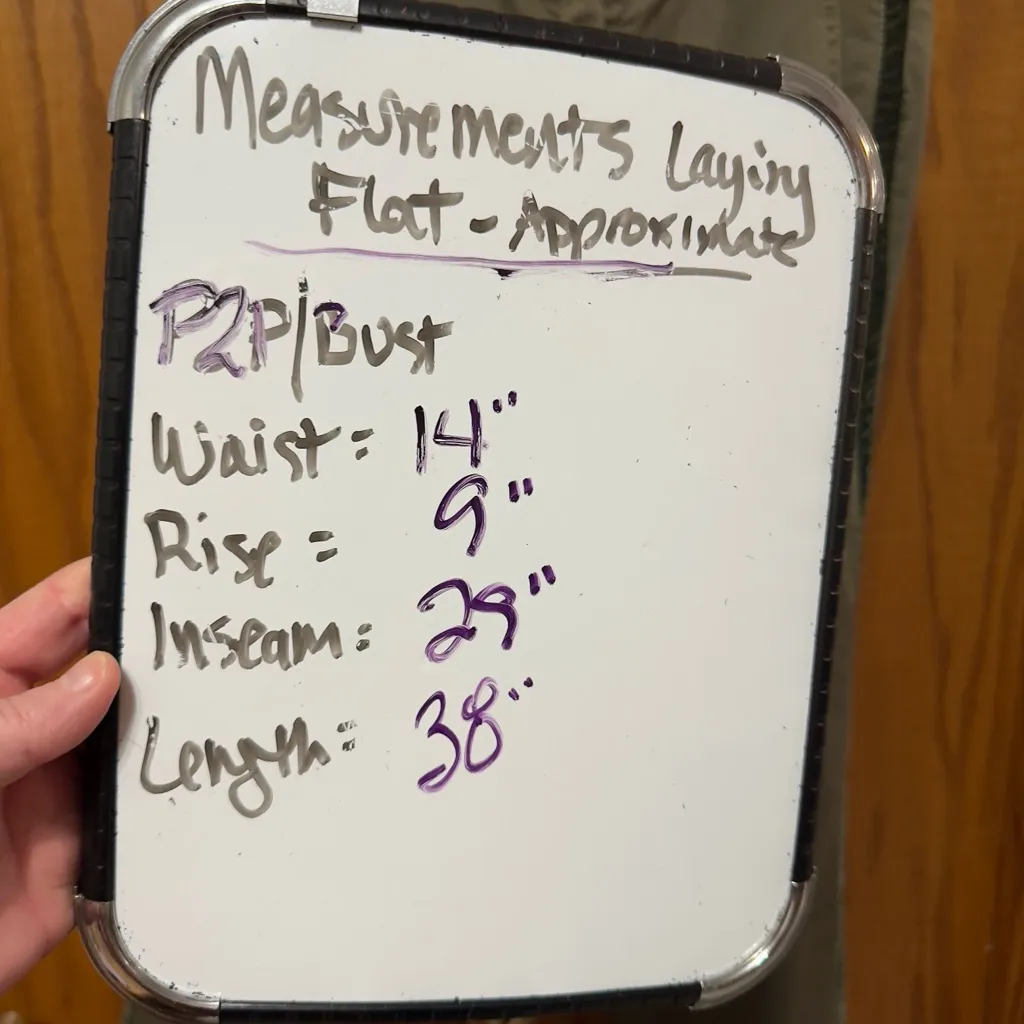 Measurements Laying
Flat - Approximate
P2P/Bust
Waist: 14"
Rise = 9"
Inseam: 29"
Length: 38"